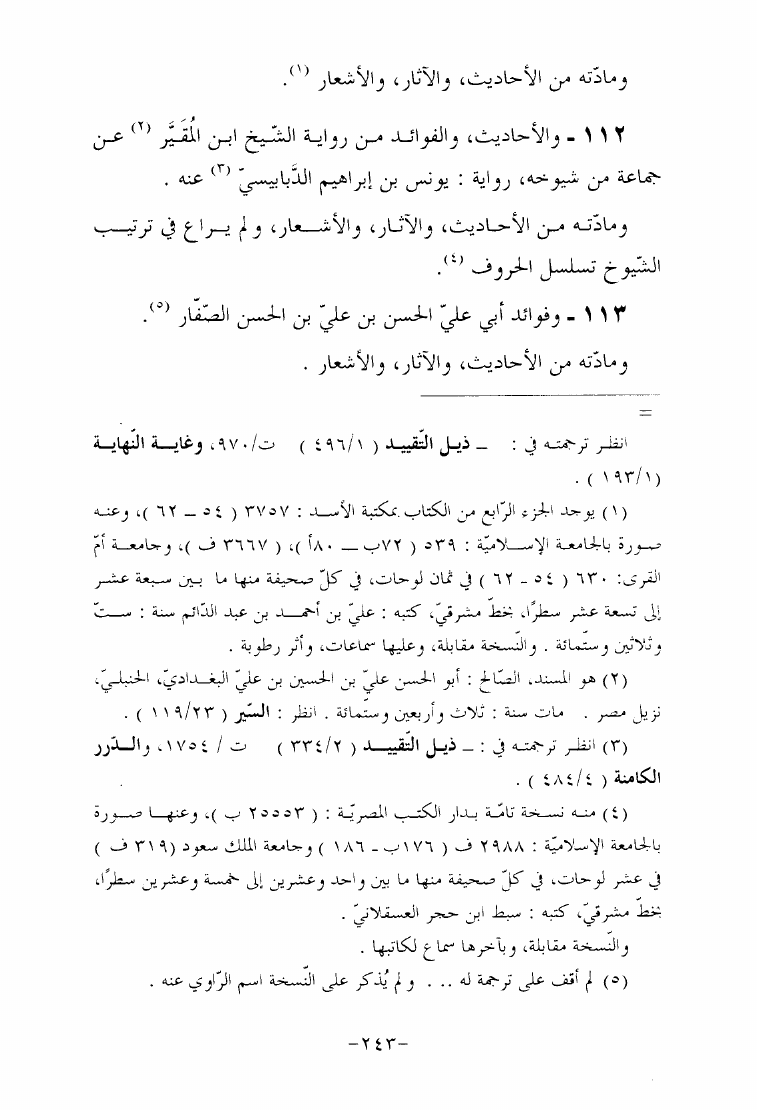 ومادّته من الأحاديث، والآثار، والأشعار (١).
١١٢ - والأحاديث، والفوائد من رواية الشّيخ ابن المُقَيَّر (٢) عن
جماعة من شيوخه، رواية : يونس بن إبراهيم الدَّبابيسيّ (٣) عنه .
ومادّته من الأحاديث، والآثار، والأشعار، ولم يراع في ترتيب
الشّيوخ تسلسل الحروف (٤).
١١٣ - وفوائد أبي عليّ الحسن بن عليّ بن الحسن الصّفّار (٥).
ومادّته من الأحاديث، والآثار، والأشعار .
=
انظر ترجمته في : – ذيل التّقييد ( ٤٩٦/١ ) ت/٩٧٠، وغاية النّهاية
(١٩٣/١ ) .
(١) يوجد الجزء الرّابع من الكتاب بمكتبة الأسد : ٣٧٥٧ ( ٥٤ – ٦٢ )، وعنه
صورة بالجامعة الإسلاميّة : ٥٣٩ ( ٧٢ب – ٨٠أ )، ( ٣٦٦٧ ف )، وجامعة أمّ
القرى: ٦٣٠ ( ٥٤ - ٦٢ ) في ثمان لوحات، في كلّ صحيفة منها ما بين سبعة عشر
إلى تسعة عشر سطرًا، بخطّ مشرقيّ، كتبه : عليّ بن أحمد بن عبد الدّائم سنة : ستّ
وثلاثين وستّمائة . والنّسخة مقابلة، وعليها سماعات، وأثر رطوبة .
(٢) هو المسند، الصّالح : أبو الحسن عليّ بن الحسين بن عليّ البغداديّ، الحنبليّ،
نزيل مصر . مات سنة : ثلاث وأربعين وستّمائة . انظر : السّير (١١٩/٢٣ ) .
(٣) انظر ترجمته في : – ذيل التّقييد ( ٣٣٤/٢ ) ت / ١٧٥٤، والدّرر
الكامنة ( ٤٨٤/٤ ) .
(٤) منه نسخة تامّة بدار الكتب المصريّة : ( ٢٥٥٥٣ ب )، وعنها صورة
بالجامعة الإسلاميّة : ٢٩٨٨ ف ( ١٧٦ب- ١٨٦ ) وجامعة الملك سعود (٣١٩ ف )
في عشر لوحات، في كلّ صحيفة منها ما بين واحد وعشرين إلى خمسة وعشرين سطرًا،
بخطّ مشرقيّ، كتبه : سبط ابن حجر العسقلانيّ .
والنّسخة مقابلة، وبآخرها سماع لكاتبها .
(٥) لم أقف على ترجمة له .. . ولم يُذكر على النّسخة اسم الرّاوي عنه .
-٢٤٣-